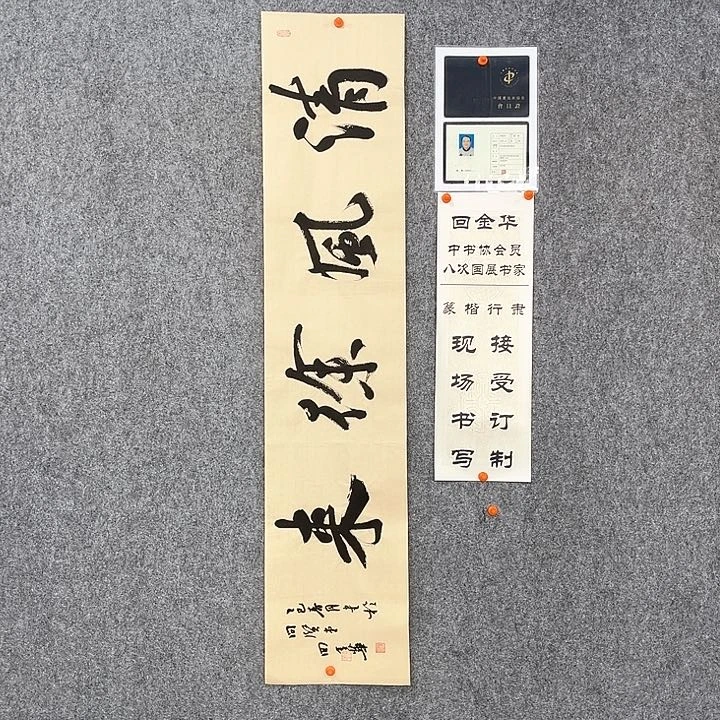 清風徐来
中國書法家協會
會員證
回金华
中书协会员
八次国展书家
篆楷行隶
接受订制
现场书写